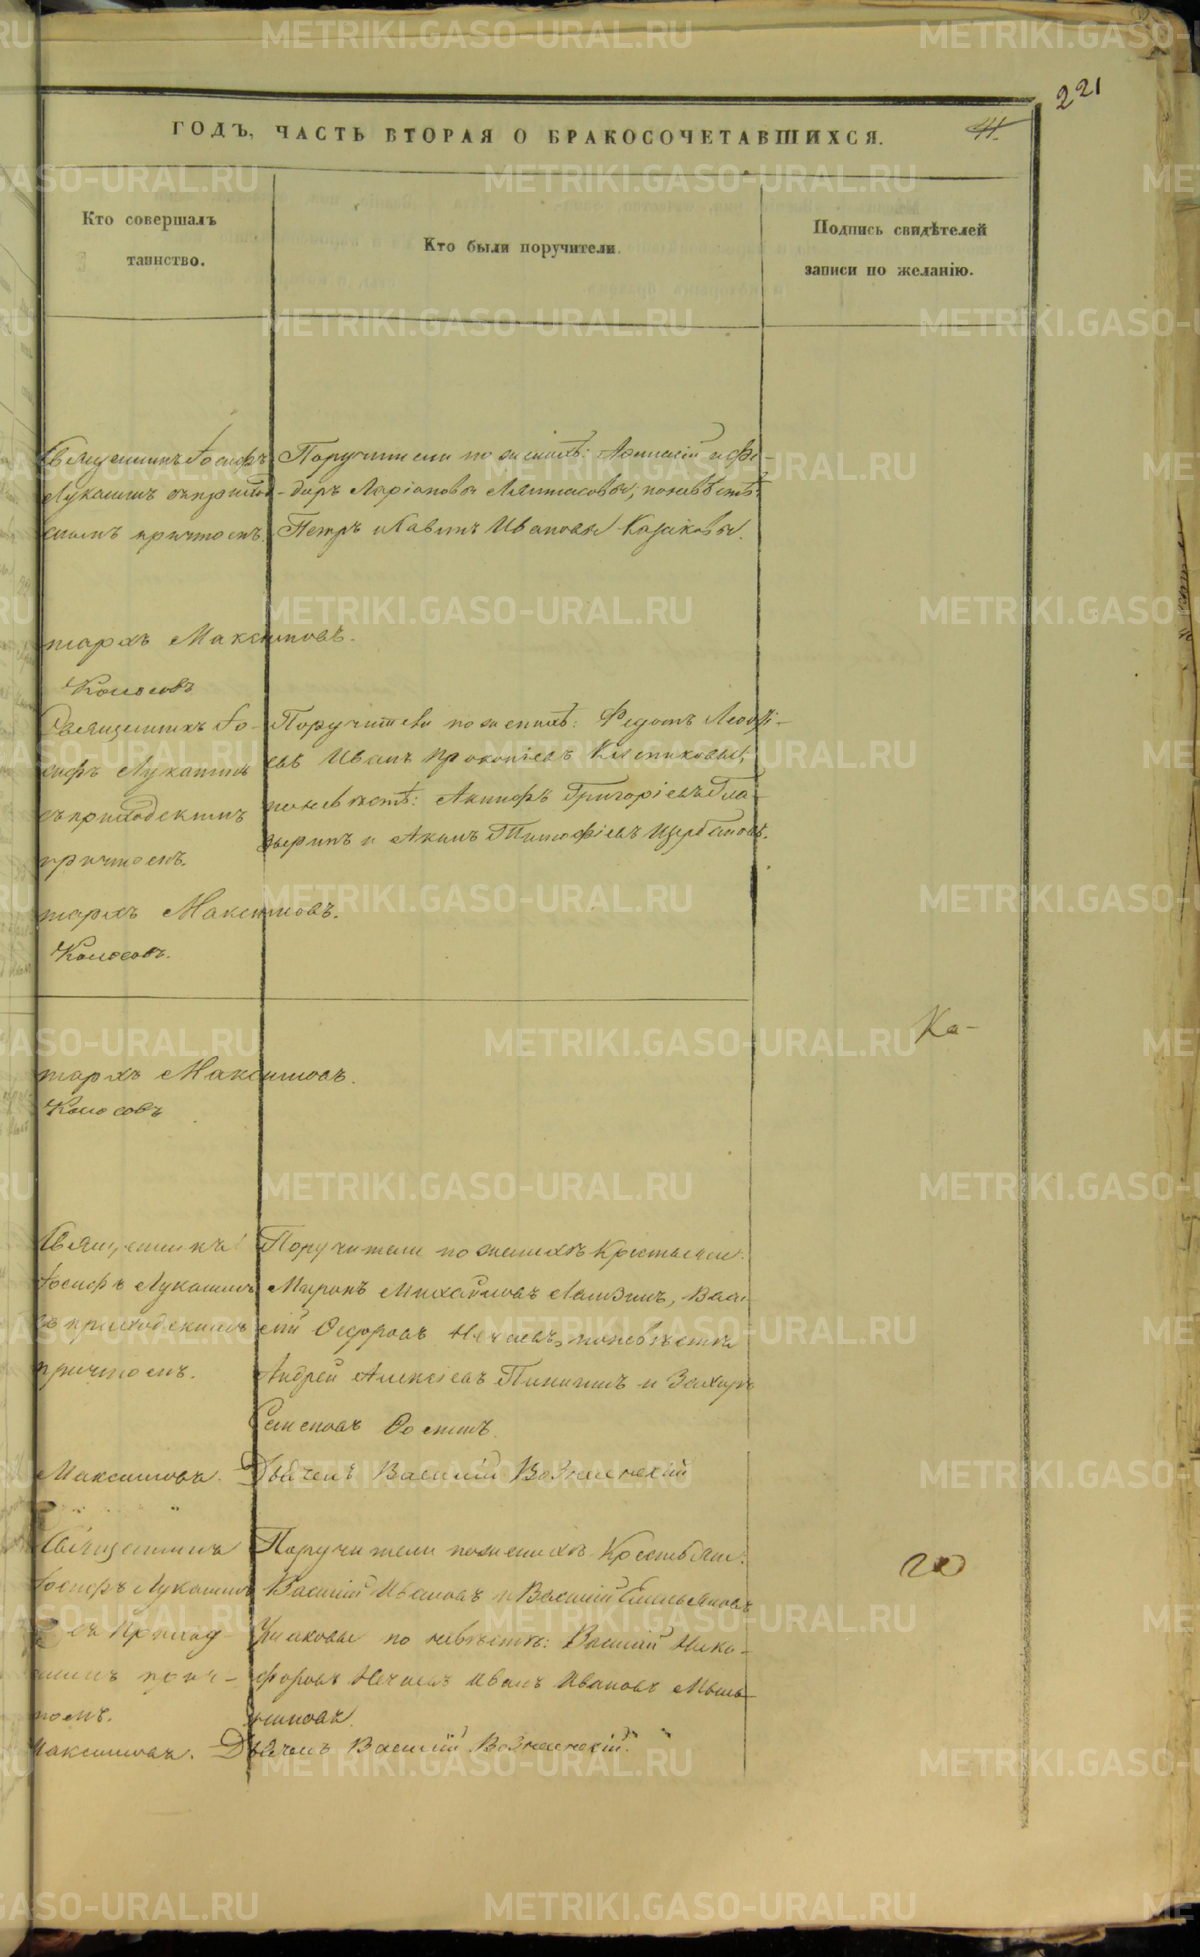 221
ГОДЪ, ЧАСТЬ ВТОРАЯ О БРАКОСОЧЕТАВШИХСЯ.
41.
Кто совершалъ
таинство.
Кто были поручители.
Подпись свидѣтелей
записи по желанію.
Священникъ Іосифъ
Лукашинъ съ приход-
скимъ причтомъ.
Поручители по женихѣ: Афанасій и Фе-
доръ Ларіановы, по невѣстѣ:
Петръ и Павелъ Ивановы Казаковы.
тархъ Максимовъ.
Колосовъ
Священникъ Іо-
сифъ Лукашинъ
съ приходскимъ
причтомъ.
Поручители по женихѣ: Федотъ Леонтi-
евъ Иванъ Прокопіевъ
по невѣстѣ: Акинфъ Григорьевъ Гла-
зыринъ и Акимъ Тимофіевъ Щербаковъ.
тархъ Максимовъ.
Колосовъ.
Ка-
тархъ Максимовъ.
Колосовъ
Священникъ
Іосифъ Лукашинъ
съ приходскимъ
причтомъ.
Поручители по женихѣ Крестьяне:
Миронъ Михайловъ, Васи-
лій Федоровъ Нечаевъ, по невѣстѣ
Андрей Алексіевъ и Захаръ
Семеновъ
Максимовъ. Дьячекъ Василій Вознесенскій
Священникъ
Іосифъ Лукашинъ
съ приход-
скимъ прич-
томъ.
Поручители по женихѣ Крестьяне:
Василій Ивановъ и Василій Емельяновъ
Ушаковы по невѣстѣ: Василій Ники-
форовъ Нечаевъ Иванъ Ивановъ Мыль-
никовъ.
Максимовъ. Дьячекъ Василій Вознесенскій.
METRIKI.GASO-URAL.RU